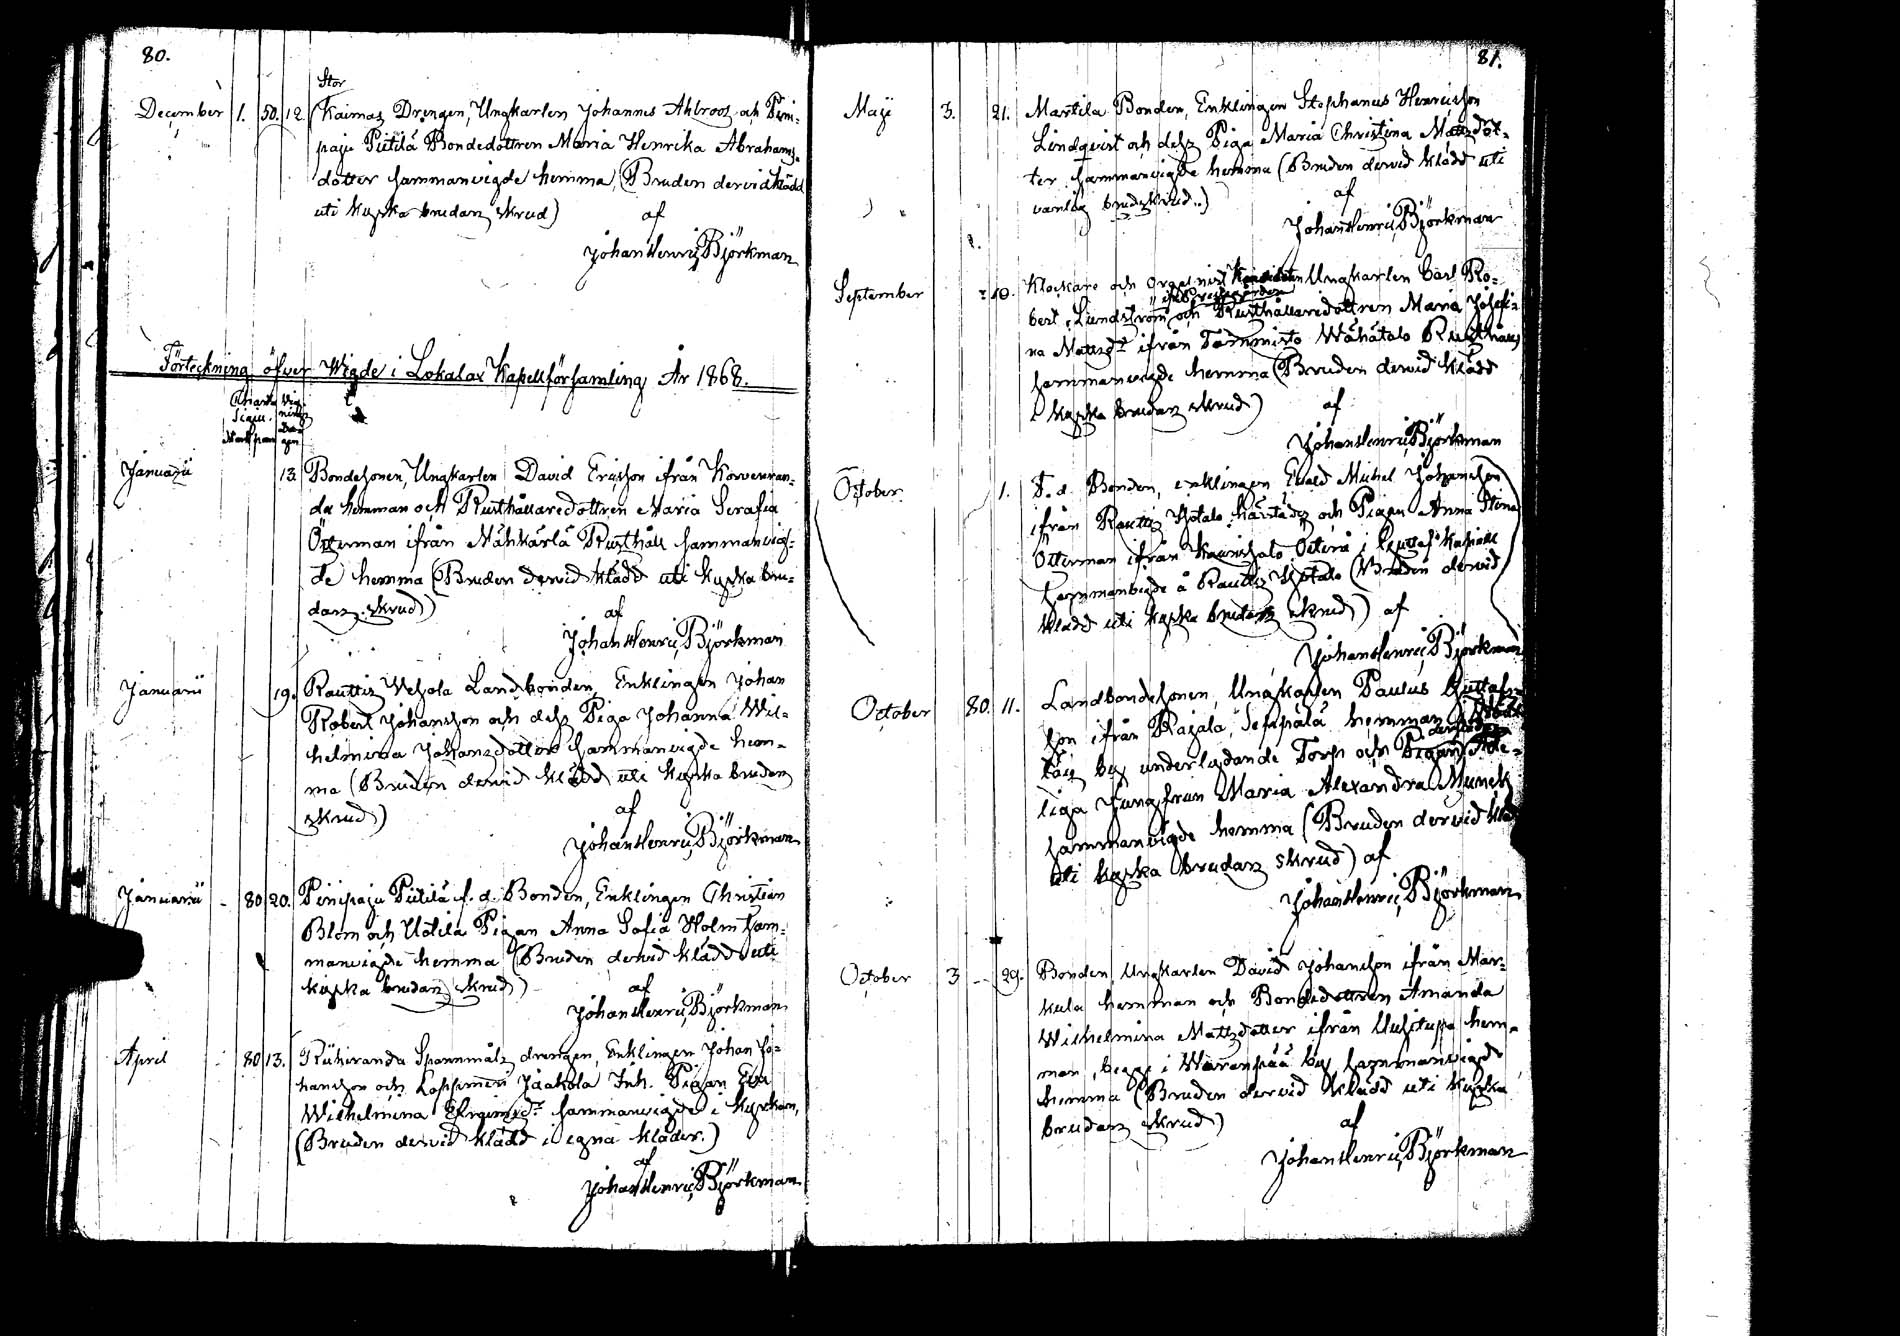 80.
Stor
December 1. 50. 12. Kaimas Drengen, Ungkarlen Johannes Ahlroos och Pini-
paju Piitilä Bondedottren Maria Henrika Abrahams-
dotter sammanvigde hemma, (Bruden dervid klädd
uti kyrko brudans skrud) af
Johan Henric Björkman
Förteckning öfver Wigde i Lokalax Kapellförsamling År 1868.
Charta Sigill. Mark penni Vig- nings Da- gen
Januarii 13. Bondesonen, Ungkarlen David Ericsson ifrån Korvenran-
da hemman och Rusthållaredottren Maria Serafia
Österman ifrån Mähkärlä Rusthåll sammanvig-
de hemma (Bruden dervid klädd uti kyrko bru-
dans skrud) af
Johan Henric Björkman
Januarii 19. Rauttis Landbonden, Enklingen Johan
Robert Johansson och dess Piga Johanna Wil-
helmina Johansdotter sammanvigde hem-
ma (Bruden dervid klädd uti kyrko brudans
skrud) af
Johan Henric Björkman
Januarii - 80 20. Pinipaju Piitilä f. d. Bonden, Enklingen Christian
Blom och Utilä Pigan Anna Sofia Holm sam-
manvigde hemma (Bruden dervid klädd uti
kyrko brudans skrud) af
Johan Henric Björkman
April 80 13. Riihiranda Spannmåls drengen, Enklingen Johan Jo-
hansson och Loppmeri Jaakola Inh. Pigan Eva
Wilhelmina sammanvigde i Kyrkan,
(Bruden dervid klädd i egna kläder.)
af
Johan Henric Björkman
81.
Maji 3. 21. Martila Bonden, Enklingen Stephanus Henricsson
Lindqvist och dess Piga Maria Christina Mattsdot-
ter sammanvigde hemma (Bruden dervid klädd uti
vanlig brudskrud.) af
Johan Henric Björkman
September 10. Klockare och Organist Ungkarlen Carl Ro-
bert Lundström och Rusthållaredottren Maria Josefi-
na Mattsdr ifrån Tammisto Wähätalo Rusthåll
sammanvigde hemma (Bruden dervid klädd
i kyrko brudans skrud) af
Johan Henric Björkman
October 1. F. d. Bonden, enklingen Michel Johansson
ifrån Rauttis härstädes och Pigan Anna Stina
Österman ifrån i Gustafs Kapell
sammanvigde å Rauttis (Bruden dervid
klädd uti kyrko brudans skrud) af
Johan Henric Björkman
October 80. 11. Landbondesonen, Ungkarlen Paulus Gustafs-
son ifrån Rajala Seppälä hemman
by underlydande Torp och Pigan Ade-
liga Jungfrun Maria Alexandra Munck
sammanvigde hemma (Bruden dervid klädd
uti kyrko brudans skrud) af
Johan Henric Björkman
October 3 - 29. Bonden, Ungkarlen David Johansson ifrån Mar-
kula hemman och Bondedottren Amanda
Wilhelmina Mattsdotter ifrån Uusitupa hem-
man, begge i Waranpää by sammanvigde
hemma (Bruden dervid klädd uti kyrko
brudans skrud) af
Johan Henric Björkman